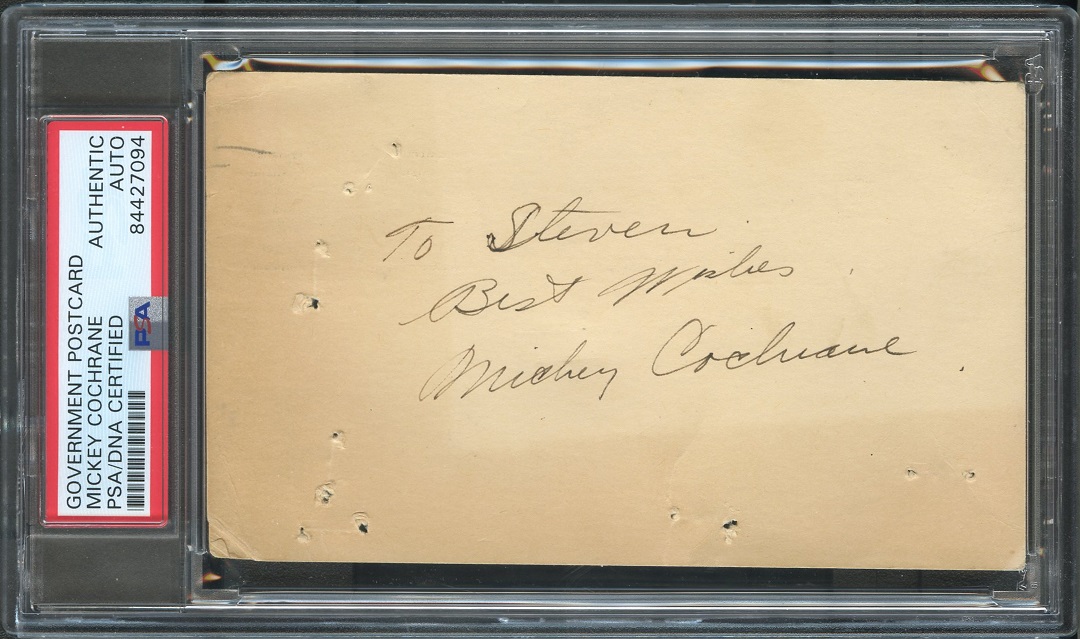 GOVERNMENT POSTCARD
MICKEY COCHRANE AUTHENTIC
PSA/DNA CERTIFIED AUTO
84427094
PSA
To Steven
Best Wishes
Mickey Cochrane